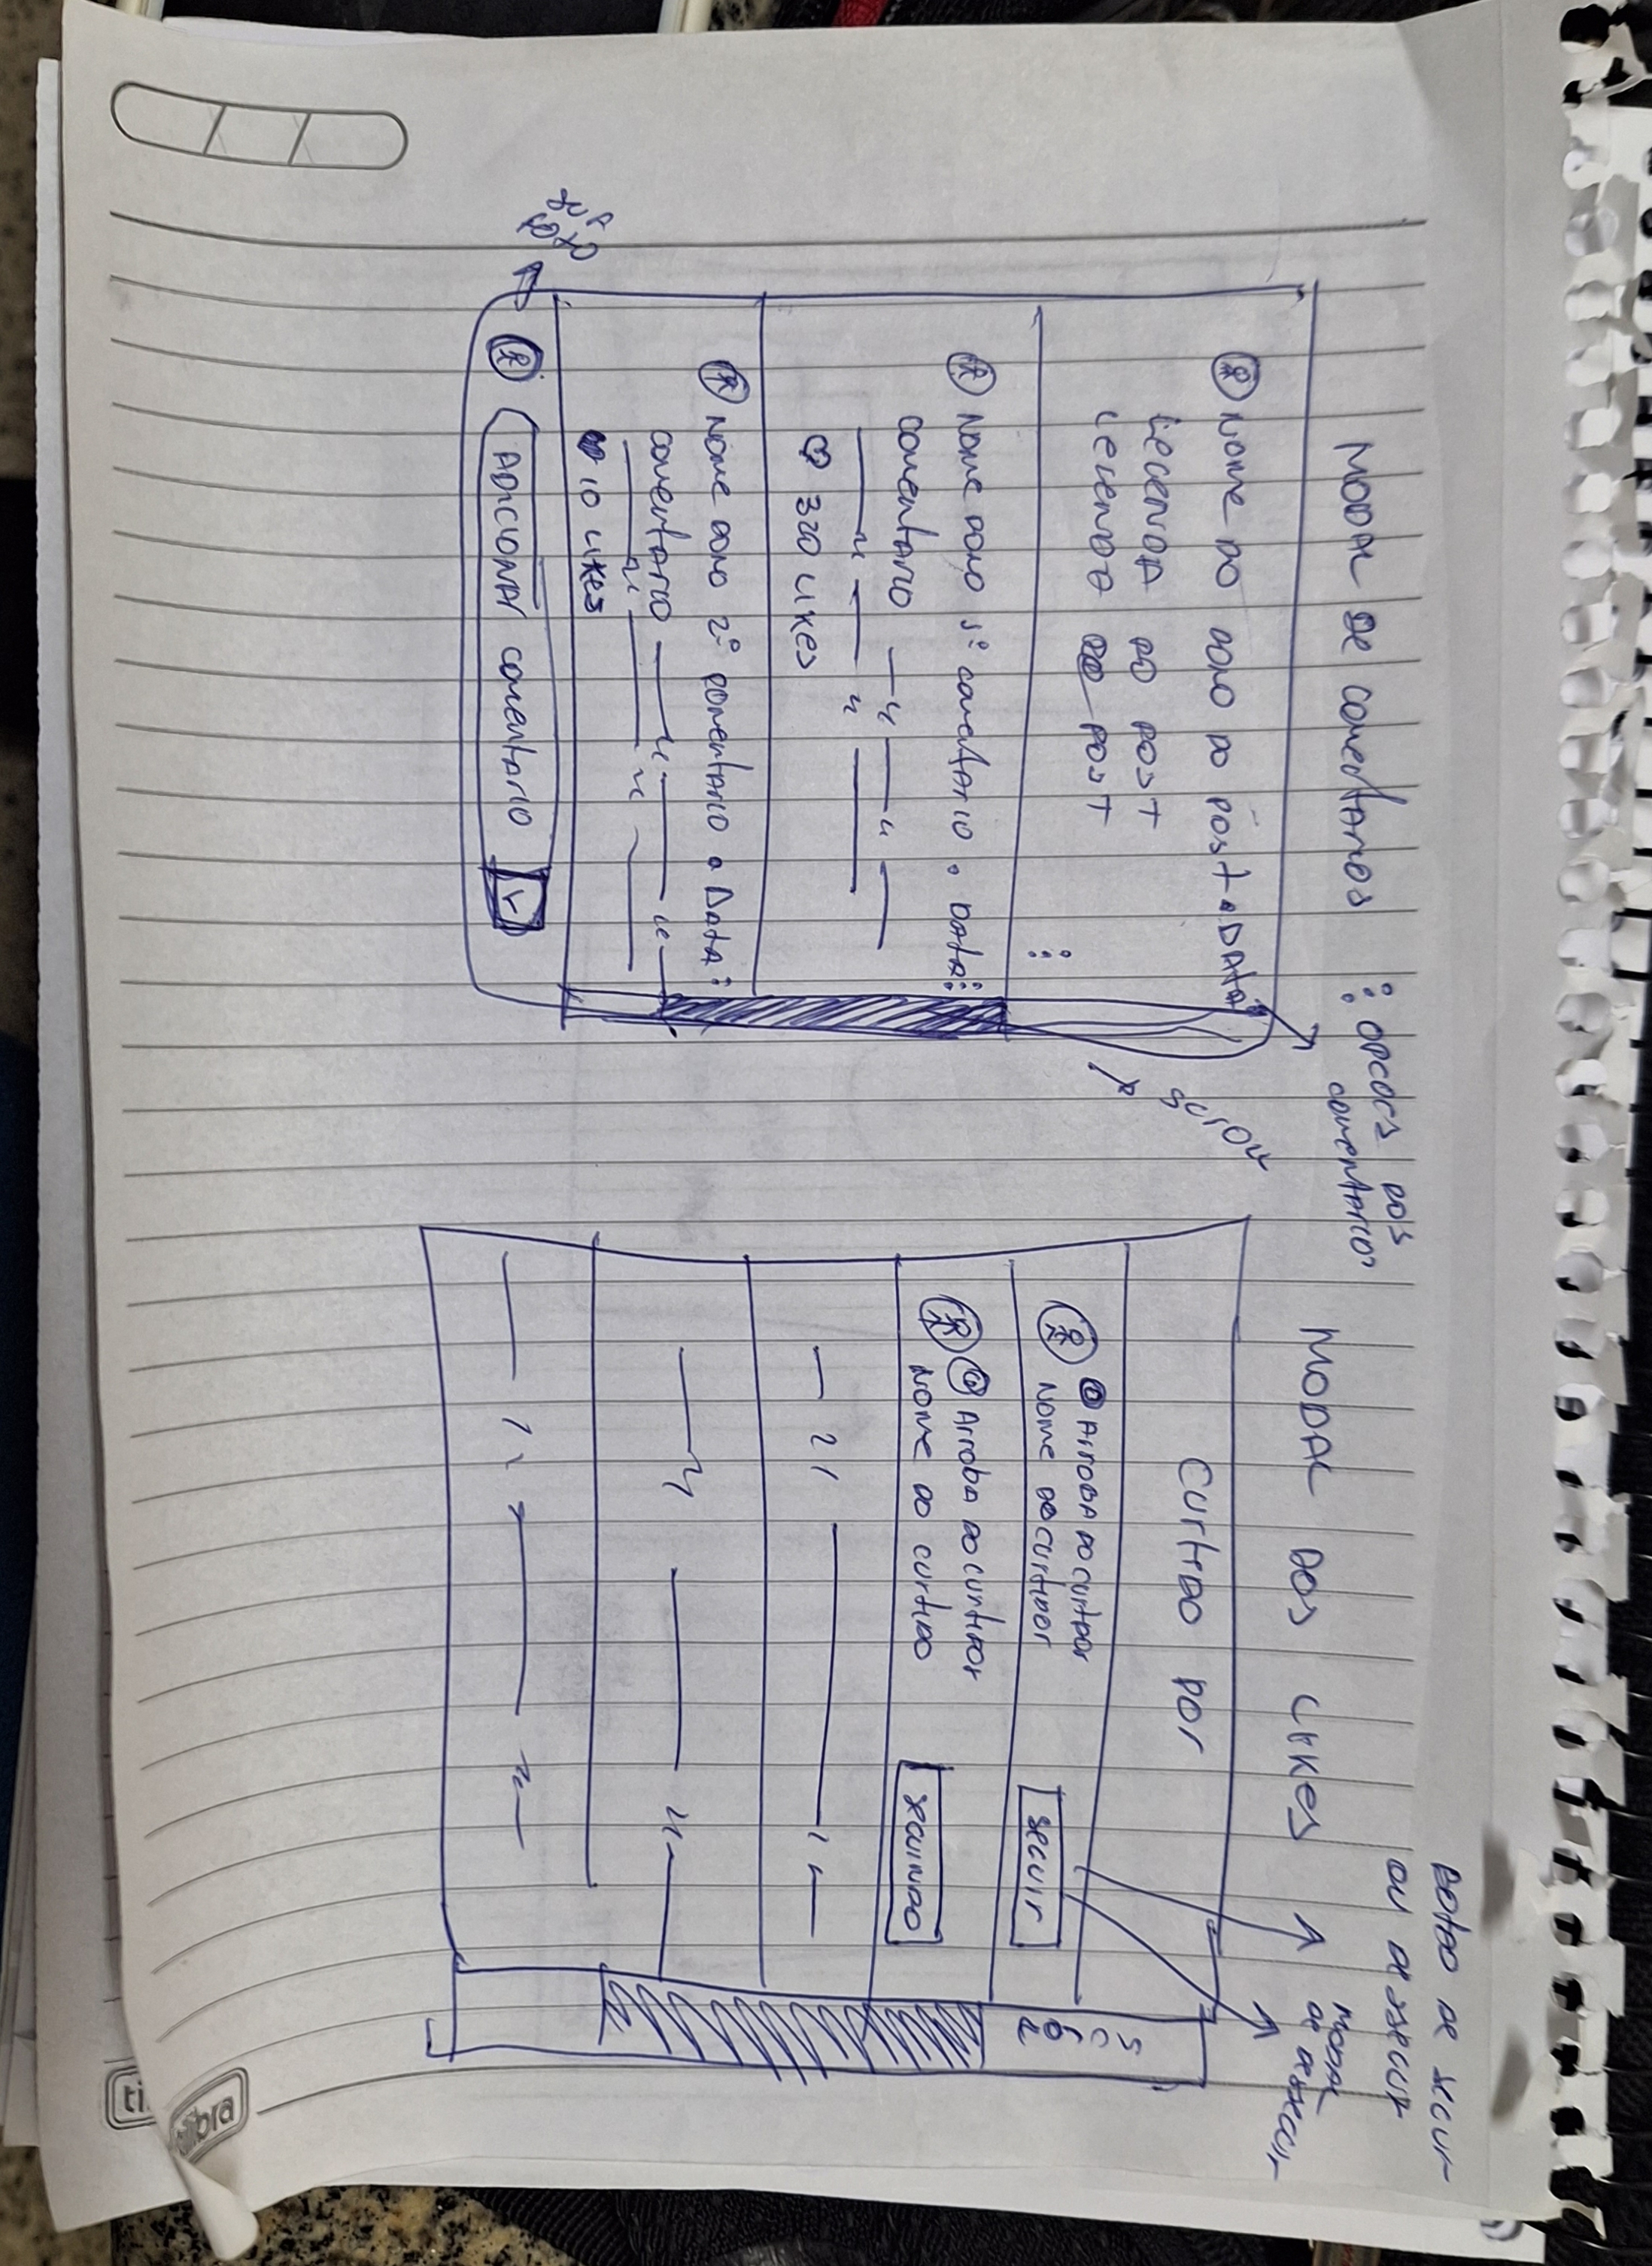 MODAL DE COMENTARIOS
OPCOES DOS
COMENTARIOS
NOME DO DONO DO POST • DATA
LEGENDA DO POST
LEGENDA DO POST
NOME DONO 1º COMENTARIO • DATA
COMENTARIO
320 LIKES
SCROLL
NOME DONO 2º COMENTARIO • DATA
COMENTARIO
10 LIKES
SUA
FOTO
ADICIONAR COMENTARIO
MODAL DOS LIKES
BOTAO DE SEGUIR
OU DE SEGUIR
MODAL
DE DESSEGUIR
CURTIDO POR
ARROBA DO CURTIDOR
NOME DO CURTIDOR
SEGUIR
ARROBA DO CURTIDOR
NOME DO CURTIDO
SEGUINDO
tilibra